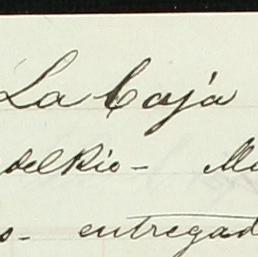 La Caja
del Rio-
entregad